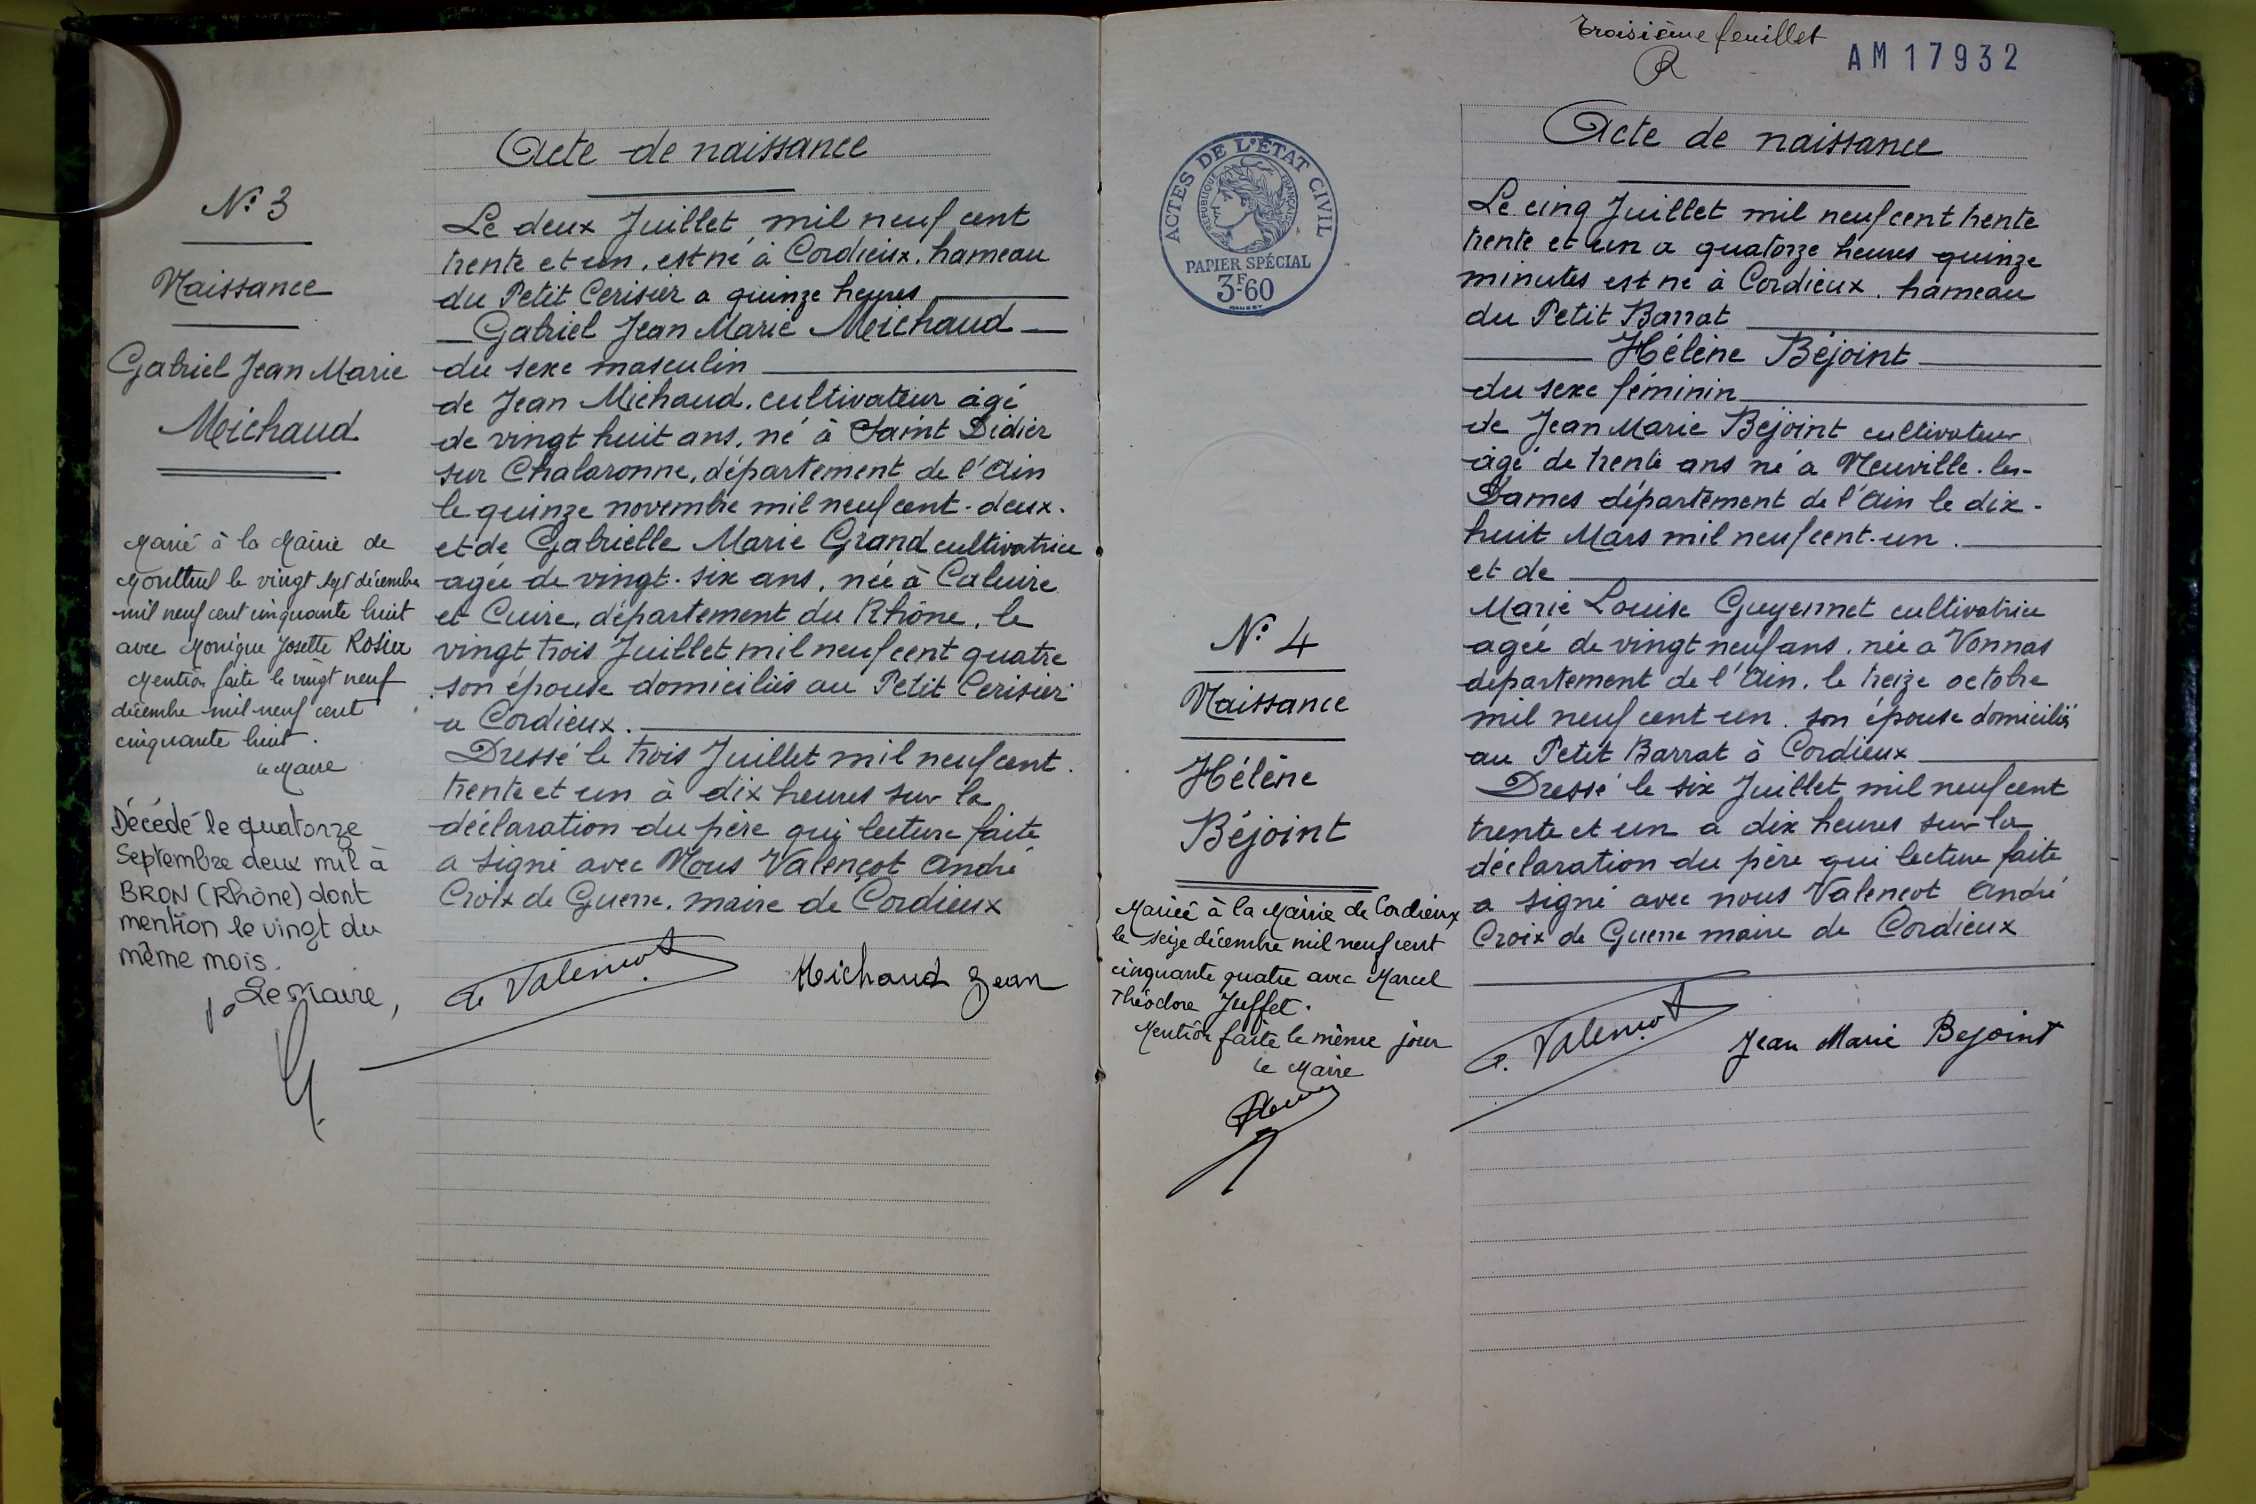 N° 3
Naissance
Gabriel Jean Marie
Michaud
Marié à la Mairie de
Montluel le vingt sept décembre
mil neuf cent cinquante huit
avec Monique Josette Rosier
Mention faite le vingt neuf
décembre mil neuf cent
cinquante huit.
le Maire
Décédé le quatorze
Septembre deux mil à
BRON (Rhône) dont
mention le vingt du
même mois.
Le Maire,
Acte de naissance
Le deux Juillet, mil neuf cent
trente et un, est né à Cordieux, hameau
du Petit Cerisier a quinze heures
Gabriel Jean Marie Michaud
du sexe masculin
de Jean Michaud, cultivateur agé
de vingt huit ans, né à Saint Didier
sur Chalaronne, département de l'Ain
le quinze novembre mil neuf cent-deux.
et de Gabrielle Marie Grand cultivatrice
agée de vingt-six ans, née à Caluire
et Cuire, département du Rhône, le
vingt trois Juillet mil neuf cent quatre
son épouse domiciliés au Petit Cerisier
a Cordieux.
Dressé le trois Juillet mil neuf cent
trente et un à dix heures sur la
déclaration du père qui lecture faite
a signé avec Nous Valençot André
Croix de Guerre, maire de Cordieux
A. Valençot Michaud Jean
Troisième feuillet
AM 17932
ACTES DE L'ÉTAT CIVIL
RÉPUBLIQUE FRANÇAISE
PAPIER SPÉCIAL
3F-60
N° 4
Naissance
Hélène
Béjoint
Mariée à la Mairie de Cordieux
le seize décembre mil neuf cent
cinquante quatre avec Marcel
Théodore Juffet.
Mention faite le même jour
Le Maire
Acte de naissance
Le cinq Juillet mil neuf cent trente
trente et un a quatorze heures quinze
minutes est né à Cordieux, hameau
du Petit Barrat
Hélène Béjoint
du sexe féminin
de Jean Marie Béjoint cultivateur
âgé de trente ans né a Neuville-les-
Dames département de l'Ain le dix-
huit Mars mil neuf cent-un.
et de
Marie Louise Guyennet cultivatrice
agée de vingt neuf ans, née a Vonnas
département de l'Ain, le treize octobre
mil neuf cent un. son épouse domiciliés
au Petit Barrat à Cordieux
Dressé le six Juillet mil neuf cent
trente et un a dix heures sur la
déclaration du père qui lecture faite
a signé avec nous Valençot André
Croix de Guerre maire de Cordieux
A. Valençot Jean Marie Bejoint